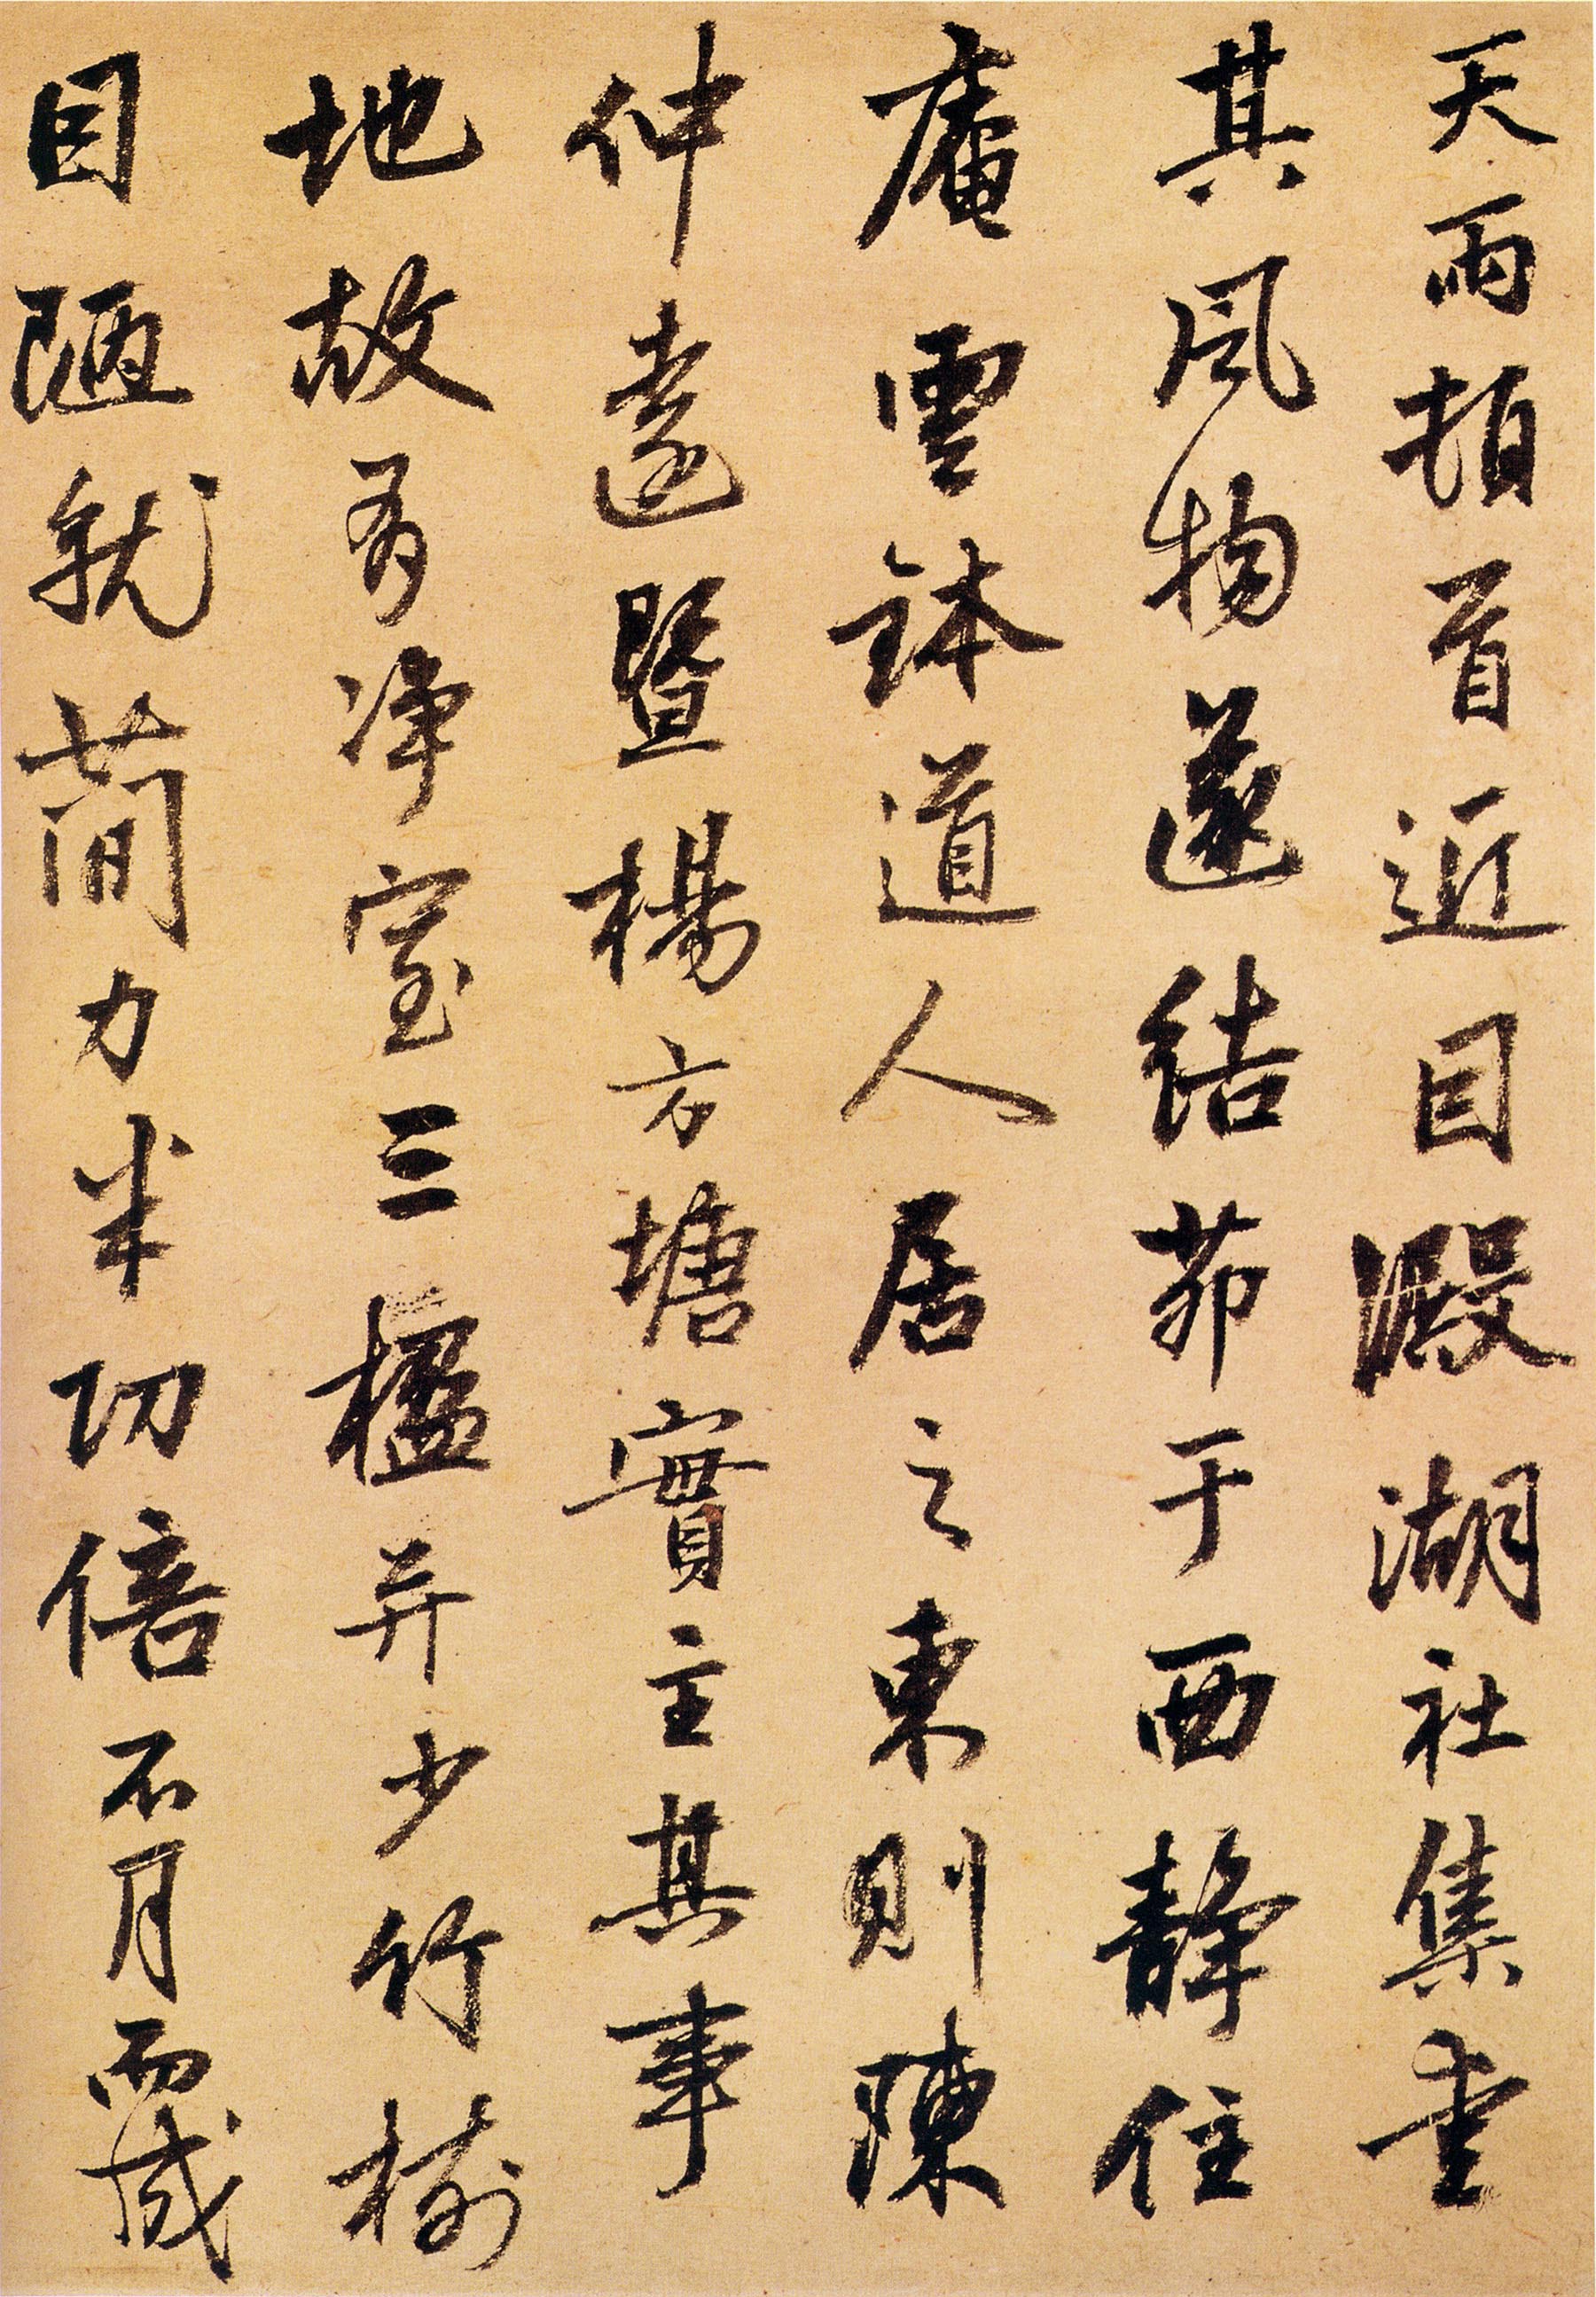 天雨頓首近因澱湖社集重
其風物遂結茆于西靜住
庵雲鉢道人居之東則陳
仲遠暨楊方塘實主其事
地故有净室三楹并少竹樹
因陋就簡力半功倍不月而成